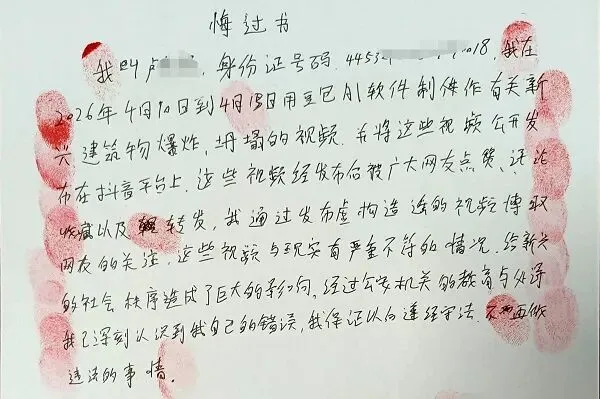 悔过书
我叫卢 , 身份证号码. 4453 018, 我在
2026年4月10日到4月13日用豆包AI软件制作有关新
兴建筑物爆炸, 坍塌的视频. 并将这些视频公开发
布在抖音平台上. 这些视频经发布后被广大网友点赞、评论
收藏以及 转发, 我通过发布虚构造 的视频博取
网友的关注. 这些视频与现实有严重不符的情况. 给新兴
的社会秩序造成了巨大的 . 经过公安机关的教育与处理
我已深刻认识到我自己的错误, 我保证以后遵纪守法. 不再做
违法的事情.